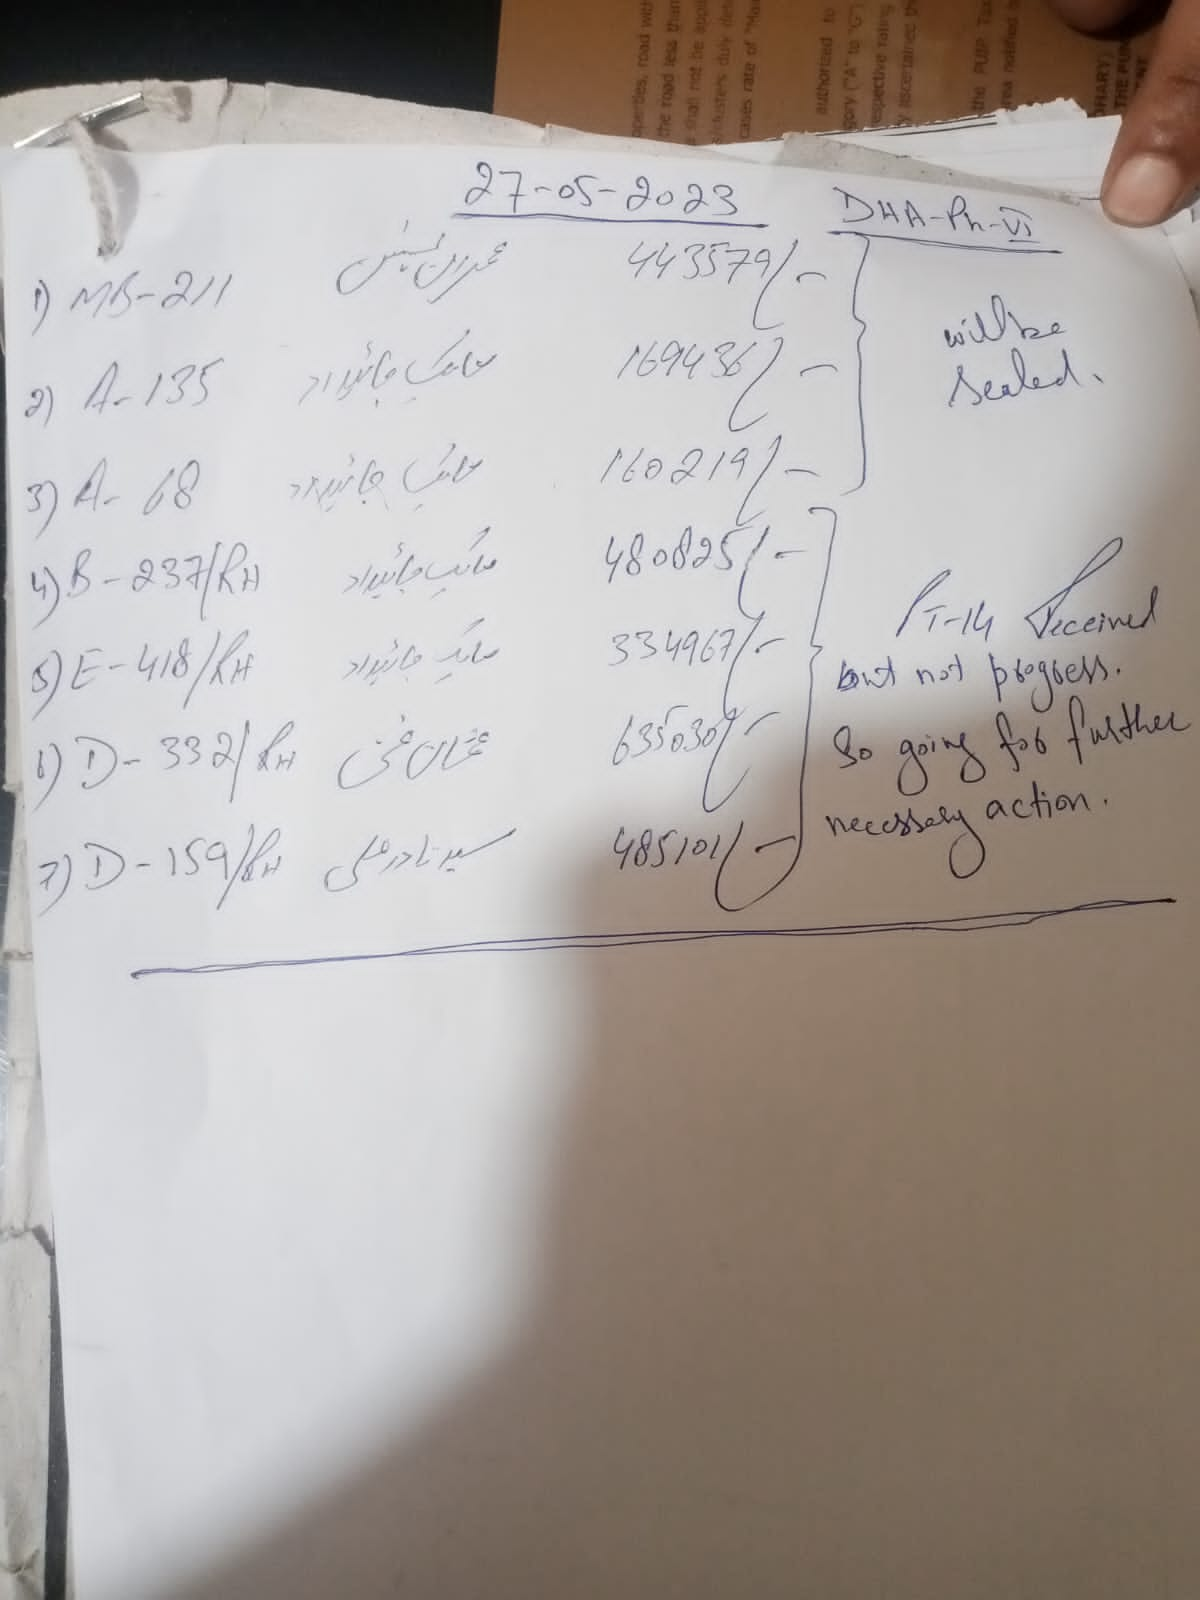 operties, road with
the road less than
shall not be appli
clusters duly dete
cases rate of "Mai
authorized to
gory ("A" to "G")
respective rating
ly ascertained th
the PUIP Tax
rea notified in
THE PUN
27-05-2023 DHA-Ph-VI
1) MB-211 443579/-
2) A-135 مالک جائیداد 169436/-
3) A-68 مالک جائیداد 160219/-
will be
sealed.
4) B-237/RH مالک جائیداد 480825/-
5) E-418/RH مالک جائیداد 334967/-
6) D-332/RH عثمان غنی 635030/-
7) D-159/RH سید نادر علی 485101/-
PT-14 Received
but not progress.
So going for further
necessary action.